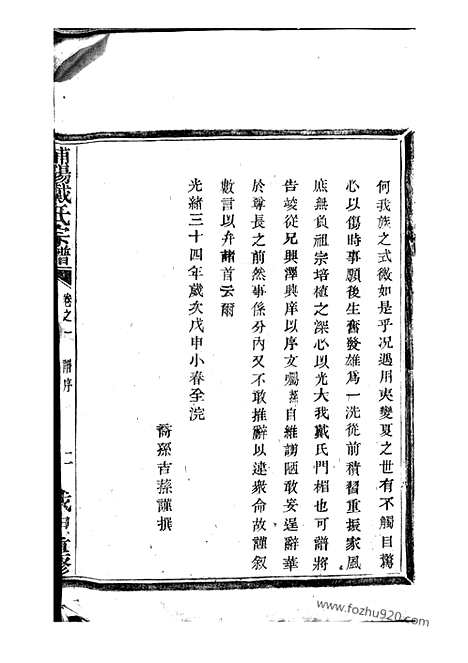 何我族之式微如是乎況遇用夷變夏之世有不觸目驚
心以傷時事願後生奮發雄爲一洗從前積習重振家風
庶無負祖宗培植之深心以光大我戴氏門楣也可譜將
告竣從兄興澤興庠以序文囑蓀自維譾陋敢妄逞辭華
於尊長之前然事係分內又不敢推辭以違衆命故謹叙
數言以弁諸首云爾
光緒三十四年歲次戊申小春全浣
裔孫吉蓀謹撰
浦陽戴氏宗譜
卷之一
譜序
二
戊申重修
www.fozhu920.com